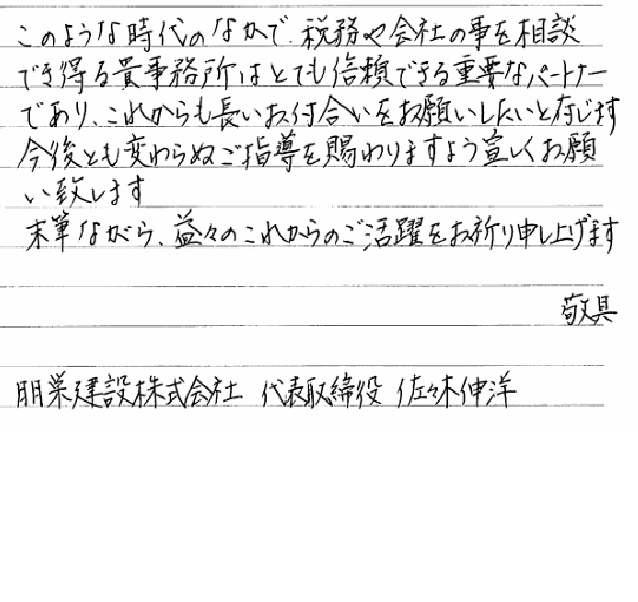 このような時代のなかで、税務や会社の事を相談
でき得る貴事務所はとても信頼できる重要なパートナー
であり、これからも長いお付合いをお願いしたいと存じます
今後とも変わらぬご指導を賜わりますよう宜しくお願
い致します
末筆ながら、益々のこれからのご活躍をお祈り申し上げます
敬具
朋栄建設株式会社 代表取締役 佐々木伸洋